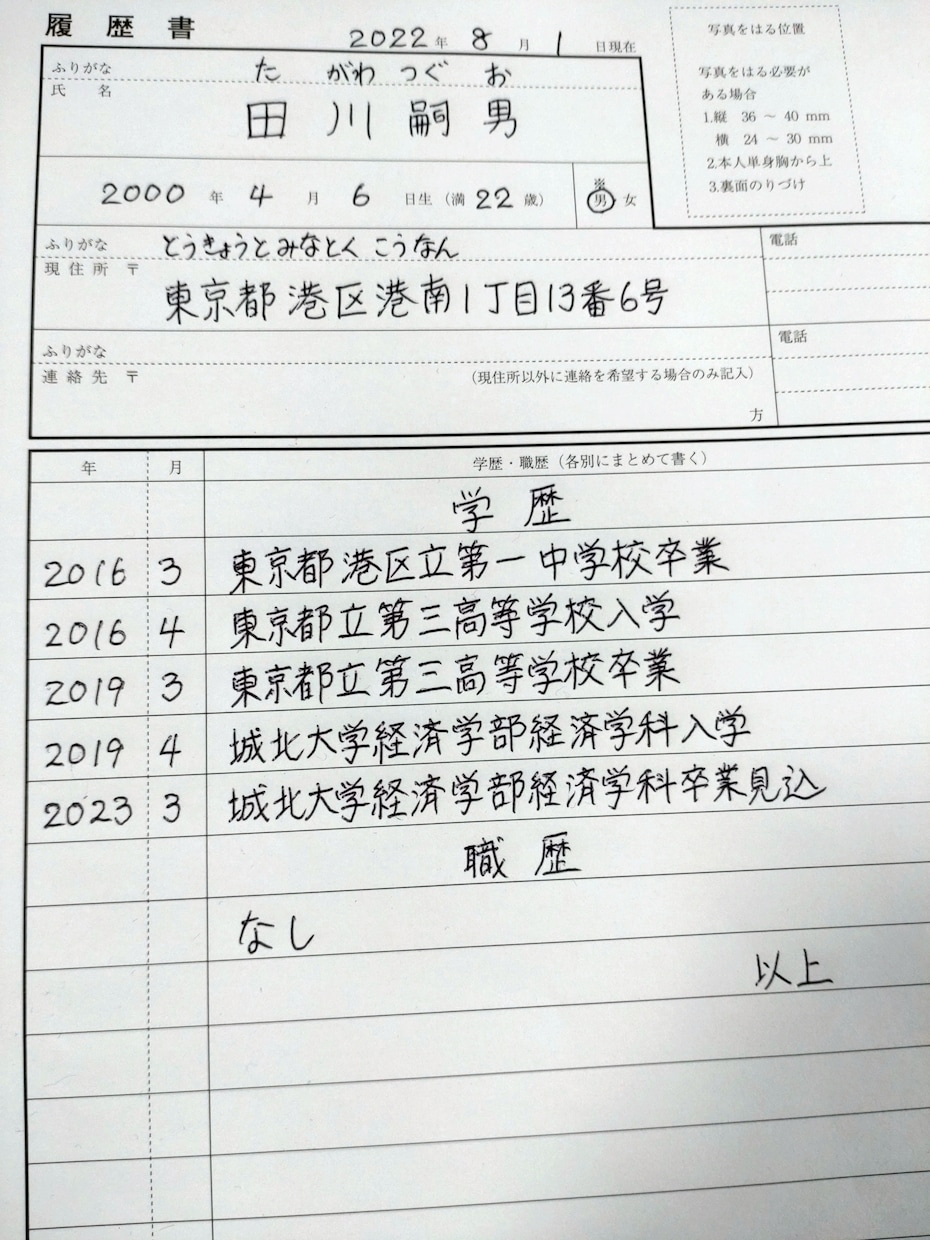 履歴書
2022年 8月 1日現在
写真をはる位置
写真をはる必要が
ある場合
1.縦 36 ～ 40 mm
横 24 ～ 30 mm
2.本人単身胸から上
3.裏面のりづけ
ふりがな た がわ つぐ お
氏 名 田川嗣男
2000年 4月 6日生（満22歳） ※ 男 女
ふりがな とうきょうとみなとく こうなん
電話
現住所 〒
東京都港区港南1丁目13番6号
ふりがな
電話
連絡先 〒 （現住所以外に連絡を希望する場合のみ記入）
方
年 月 学歴・職歴（各別にまとめて書く）
学歴
2016 3 東京都港区立第一中学校卒業
2016 4 東京都立第三高等学校入学
2019 3 東京都立第三高等学校卒業
2019 4 城北大学経済学部経済学科入学
2023 3 城北大学経済学部経済学科卒業見込
職歴
なし
以上